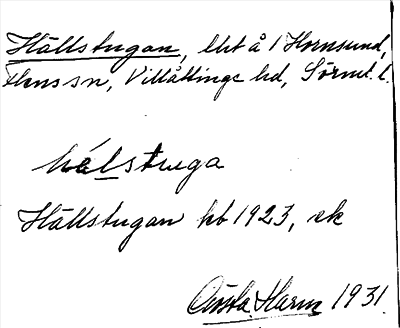 Hällstugan, lht å 1 Hornsund,
Flens sn, Villåttinge hd, Sörml. l.
hälstuga
Hällstugan kb 1923, ek
Gösta Harm 1931